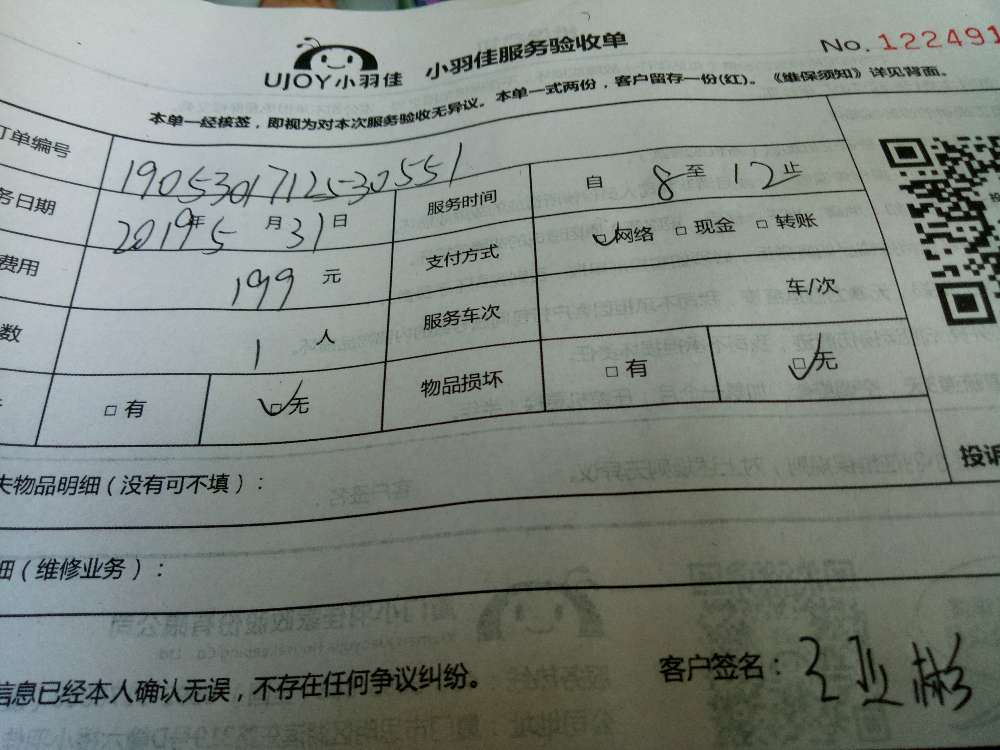 UJOY小羽佳 小羽佳服务验收单 No. 122491
本单一经核签，即视为对本次服务验收无异议。本单一式两份，客户留存一份(红)。《维保须知》详见背面。
订单编号 190530171253055 1
务日期 2019年5月31日 服务时间 自8至12止
费用 199元 支付方式 网络 □ 现金 □ 转账
数 1人 服务车次 车/次
□ 有 □ 无 物品损坏 □ 有 □ 无
投诉
失物品明细（没有可不填）：
细（维修业务）：
信息已经本人确认无误，不存在任何争议纠纷。 客户签名：王亚彬